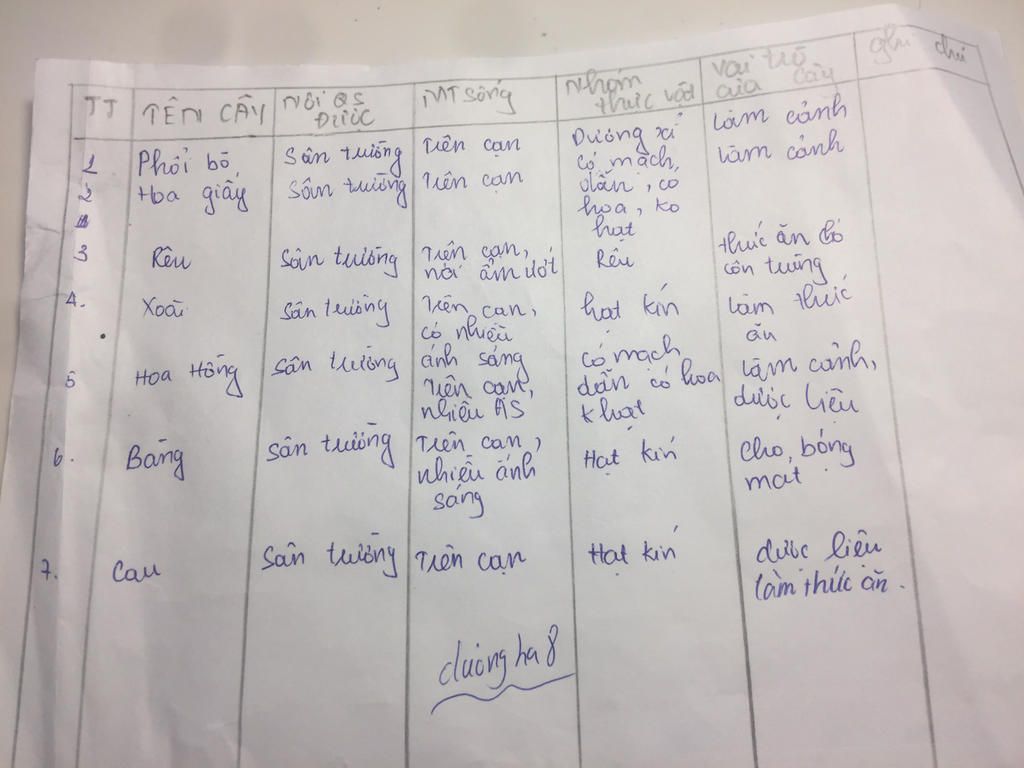 TT TÊN CÂY NƠI QS ĐƯỢC MT sống Nhóm thực vật vai trò của cây ghi chú
1 Phổi bò Sân trường Trên cạn Dương xỉ làm cảnh
2 Hoa giấy Sân trường Trên cạn có mạch, dẫn, có hoa, ko hạt làm cảnh
3 Rêu Sân trường Trên cạn, nơi ẩm ướt Rêu thức ăn cho côn trùng
4. Xoài Sân trường Trên cạn, có nhiều ánh sáng hạt kín làm thức ăn
5 Hoa Hồng Sân trường Trên cạn, nhiều AS có mạch dẫn có hoa k hạt làm cảnh, dược liệu
6. Bàng Sân trường Trên cạn, nhiều ánh sáng Hạt kín Cho, bóng mat
7. Cau Sân trường Trên cạn Hạt kín dược liệu làm thức ăn.
duongha8